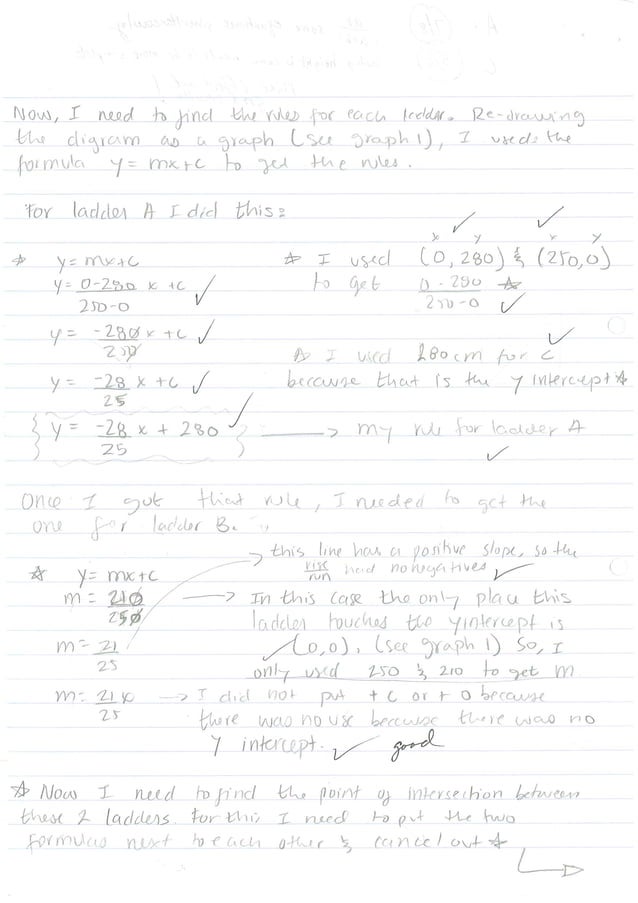 Now, I need to find the rules for each ladder. Re-drawing
the digram as a graph (see graph 1), I useds the
formula y = mx+c to get the rules.
For ladder A I did this:
y = mx+c
y = 0-280/250-0 x + c
y = -280/250 x + c
y = -28/25 x + c
y = -28/25 x + 280 → my rule for ladder A
x y x y
☆ I used (0, 280) & (250,0)
to get 0-280/250-0 ☆
☆ I used 280cm for C
because that is the y intercept ☆
Once I got that rule, I needed to get the
one for ladder B.
→ this line has a positive slope, so the
rise/run had no negatives
☆ y = mx+c
m = 210/250 → In this case the only place this
ladder touches the y intercept is
m = 21/25 (0,0), (see graph 1) So, I
only used 250 & 210 to get m
m = 21/25 x → I did not put + c or + 0 because
there was no use because there was no
y intercept. good
☆ Now I need to find the point of intersection between
these 2 ladders. For this I need to put the two
formulas next to each other & cancel out ☆